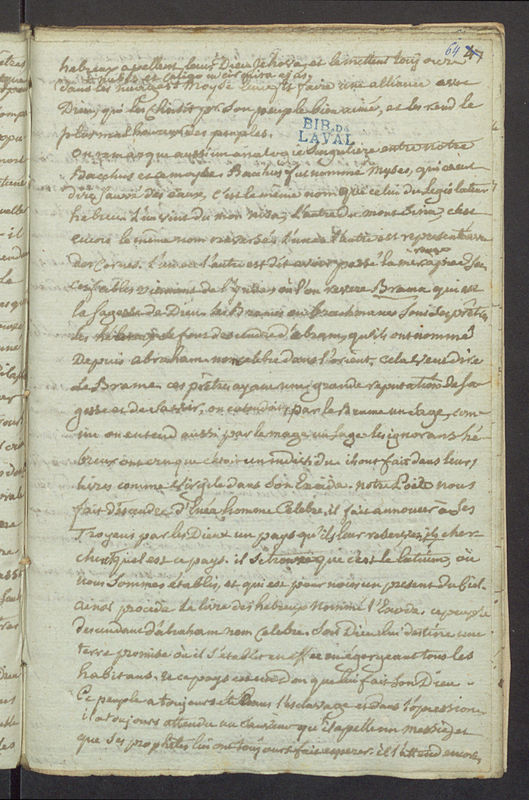 64 47
hebreux apellent leur Dieu Jehova, et le mettent toujours
nubes et caligo in circuitu ejus
dans les nuages Moyse leur fit faire une alliance avec
Dieu, qui les choisit pr. son peuple bien aimé, et les rend le
plus malheureux des peuples.
BIB. DE
LAVAL
on remarque aussi une analogie singuliere entre notre
Bacchus et Moyse. Bacchus fut nommé Myses, qui veut
dire sauvé des eaux, c'est le même nom que celui du Legislateur
hebreu l'un vint du mon nisa, l'autre du mont Sina, c'est
encore le même nom renversé. l'un et l'autre est representé avec
des Cornes. l'un et l'autre est dit avoir passé la mer rouge a sec
ces fables viennent de l'Inde, où l'on revere Brama qui est
la sagesse de Dieu. les Bramis ou brachmanes sont ses prêtres
les hebreux se font descendre d'abram, qu'ils ont nommé
Depuis abraham. nom celebre dans l'orient, cela veut dire
Le Brame. ces prêtres ayant une grande reputation de sa-
gesse et de savoir, on entendoit par le Brame un sage, com-
me on entend aussi par le mage un sage les ignorans hé-
breux ont cru que c'etoit un individu ils ont fait dans leurs
livres comme Virgile dans son Eneide. notre Poëte nous
fait descendre d'Enea homme Celebre, il fait annoncer à ses
Troyens par les Dieux un pays qu'ils leur reservent, ils cher-
chent quel est ce pays. il se trouve que c'est le latium, où
nous sommes établis, et qui est pour nous un present du Ciel.
ainsi procede le livre des hebreux nommé l'Exode. ce peuple
descendant d'abraham nom celebre. son Dieu lui destine une
terre promise où il s'établit en effet en égorgeant tous les
habitans. et ce pays est un don que lui fait son Dieu.
Ce peuple a toujours été dans l'esclavage et dans l'opression
il a toujours attendu un sauveur qu'il apelle un messie, et
que ses prophêtes lui ont toujours fait esperer. il l'attend encore,